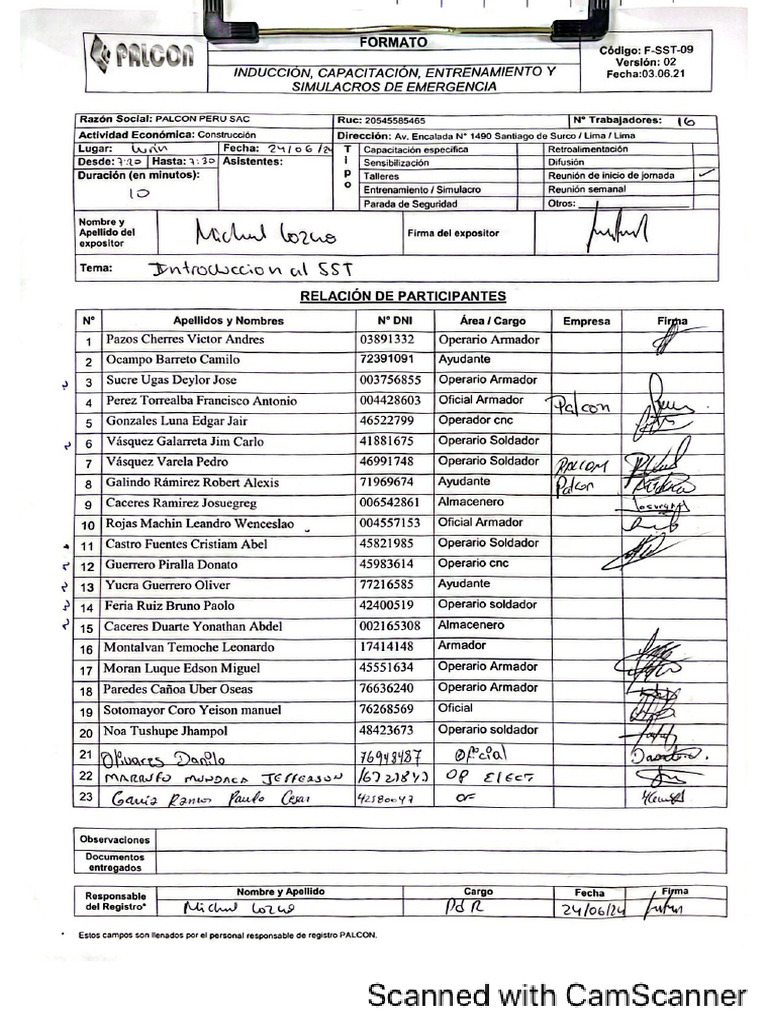 PALCON
FORMATO
INDUCCIÓN, CAPACITACIÓN, ENTRENAMIENTO Y
SIMULACROS DE EMERGENCIA
Código: F-SST-09
Versión: 02
Fecha:03.06.21
Razón Social: PALCON PERU SAC Ruc: 20545585465 N° Trabajadores: 16
Actividad Económica: Construcción Dirección: Av. Encalada N° 1490 Santiago de Surco / Lima / Lima
Lugar: Lurín Fecha: 24/06/24 Tipo Capacitación especifica Retroalimentación
Sensibilización Difusión
Desde: 7:20 Hasta: 7:30 Asistentes:
Duración (en minutos): Talleres Reunión de inicio de jornada ✓
10 Entrenamiento / Simulacro Reunión semanal
Parada de Seguridad Otros:
Nombre y
Apellido del
expositor
Michael Lozano Firma del expositor
Tema: Introduccion al SST
RELACIÓN DE PARTICIPANTES
N° Apellidos y Nombres N° DNI Área / Cargo Empresa Firma
1 Pazos Cherres Victor Andres 03891332 Operario Armador
2 Ocampo Barreto Camilo 72391091 Ayudante
3 Sucre Ugas Deylor Jose 003756855 Operario Armador
4 Perez Torrealba Francisco Antonio 004428603 Oficial Armador Palcon
5 Gonzales Luna Edgar Jair 46522799 Operador cnc
6 Vásquez Galarreta Jim Carlo 41881675 Operario Soldador
7 Vásquez Varela Pedro 46991748 Operario Soldador PALCOM
8 Galindo Rámirez Robert Alexis 71969674 Ayudante Palcon
9 Caceres Ramirez Josuegreg 006542861 Almacenero
10 Rojas Machin Leandro Wenceslao 004557153 Oficial Armador
11 Castro Fuentes Cristiam Abel 45821985 Operario Soldador
12 Guerrero Piralla Donato 45983614 Operario cnc
13 Yucra Guerrero Oliver 77216585 Ayudante
14 Feria Ruiz Bruno Paolo 42400519 Operario soldador
15 Caceres Duarte Yonathan Abdel 002165308 Almacenero
16 Montalvan Temoche Leonardo 17414148 Armador
17 Moran Luque Edson Miguel 45551634 Operario Armador
18 Paredes Cañoa Uber Oseas 76636240 Operario Armador
19 Sotomayor Coro Yeison manuel 76268569 Oficial
20 Noa Tushupe Jhampol 48423673 Operario soldador
21 Olivares Danilo 76948487 Oficial
22 MARRUFO MUNDACA JEFFERSON 16721843 OP ELECT
23 Garcia Ramos Paulo Cesar 42580047 OF
Observaciones
Documentos
entregados
Responsable
del Registro*
Nombre y Apellido Cargo Fecha Firma
Michael Lozano PdR 24/06/24
* Estos campos son llenados por el personal responsable de registro PALCON.
Scanned with CamScanner